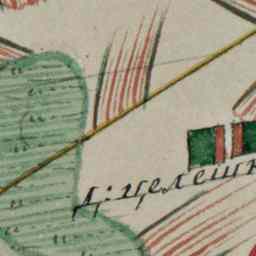 Д: целешн